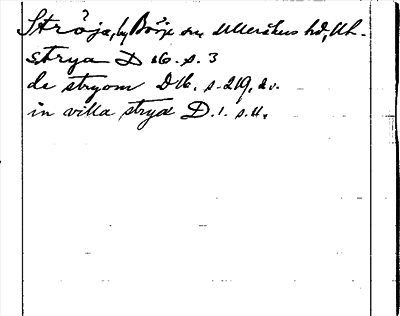 Ströja, by Börje sn, Ulleråkers hd, Uh.
strya D 16. s. 3
de stryom D 16. s. 219, 2 v.
in villa strya D. 1. s. 11.